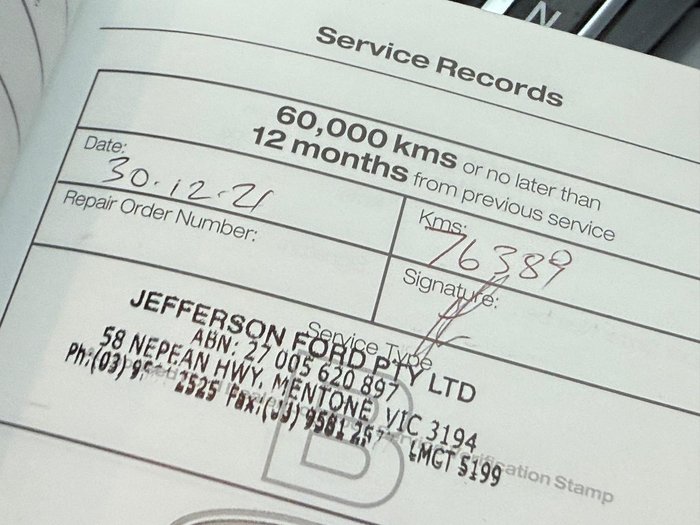 N
Service Records
60,000 kms or no later than
12 months from previous service
Date:
30.12.21
Kms:
76389
Repair Order Number:
Signature:
Service Type
JEFFERSON FORD PTY LTD
ABN: 27 005 620 897
58 NEPEAN HWY, MENTONE, VIC 3194
Ph:(03) 2525 Fax:(03) 9581 LMCT 5199
B
Stamp